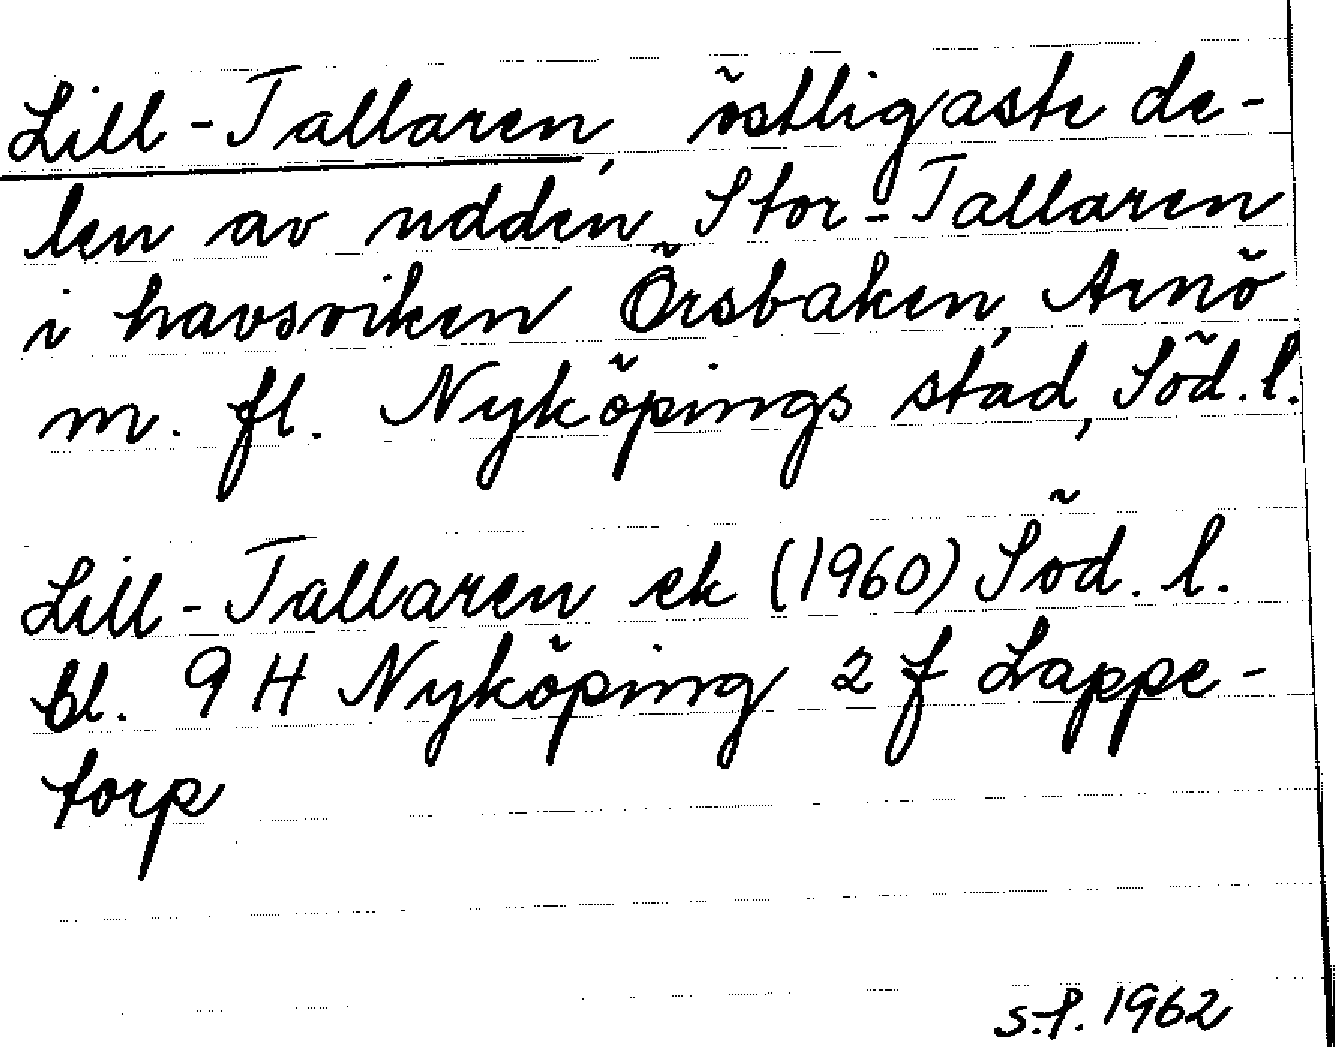 Lill-Tallaren, östligaste de-
len av udden Stor-Tallaren
i havsviken Örsbaken, Arnö
m. fl. Nyköpings stad, Söd. l.
Lill-Tallaren ek (1960) Söd. l.
bl. 9 H Nyköping 2 f Lappe-
torp
S.P. 1962